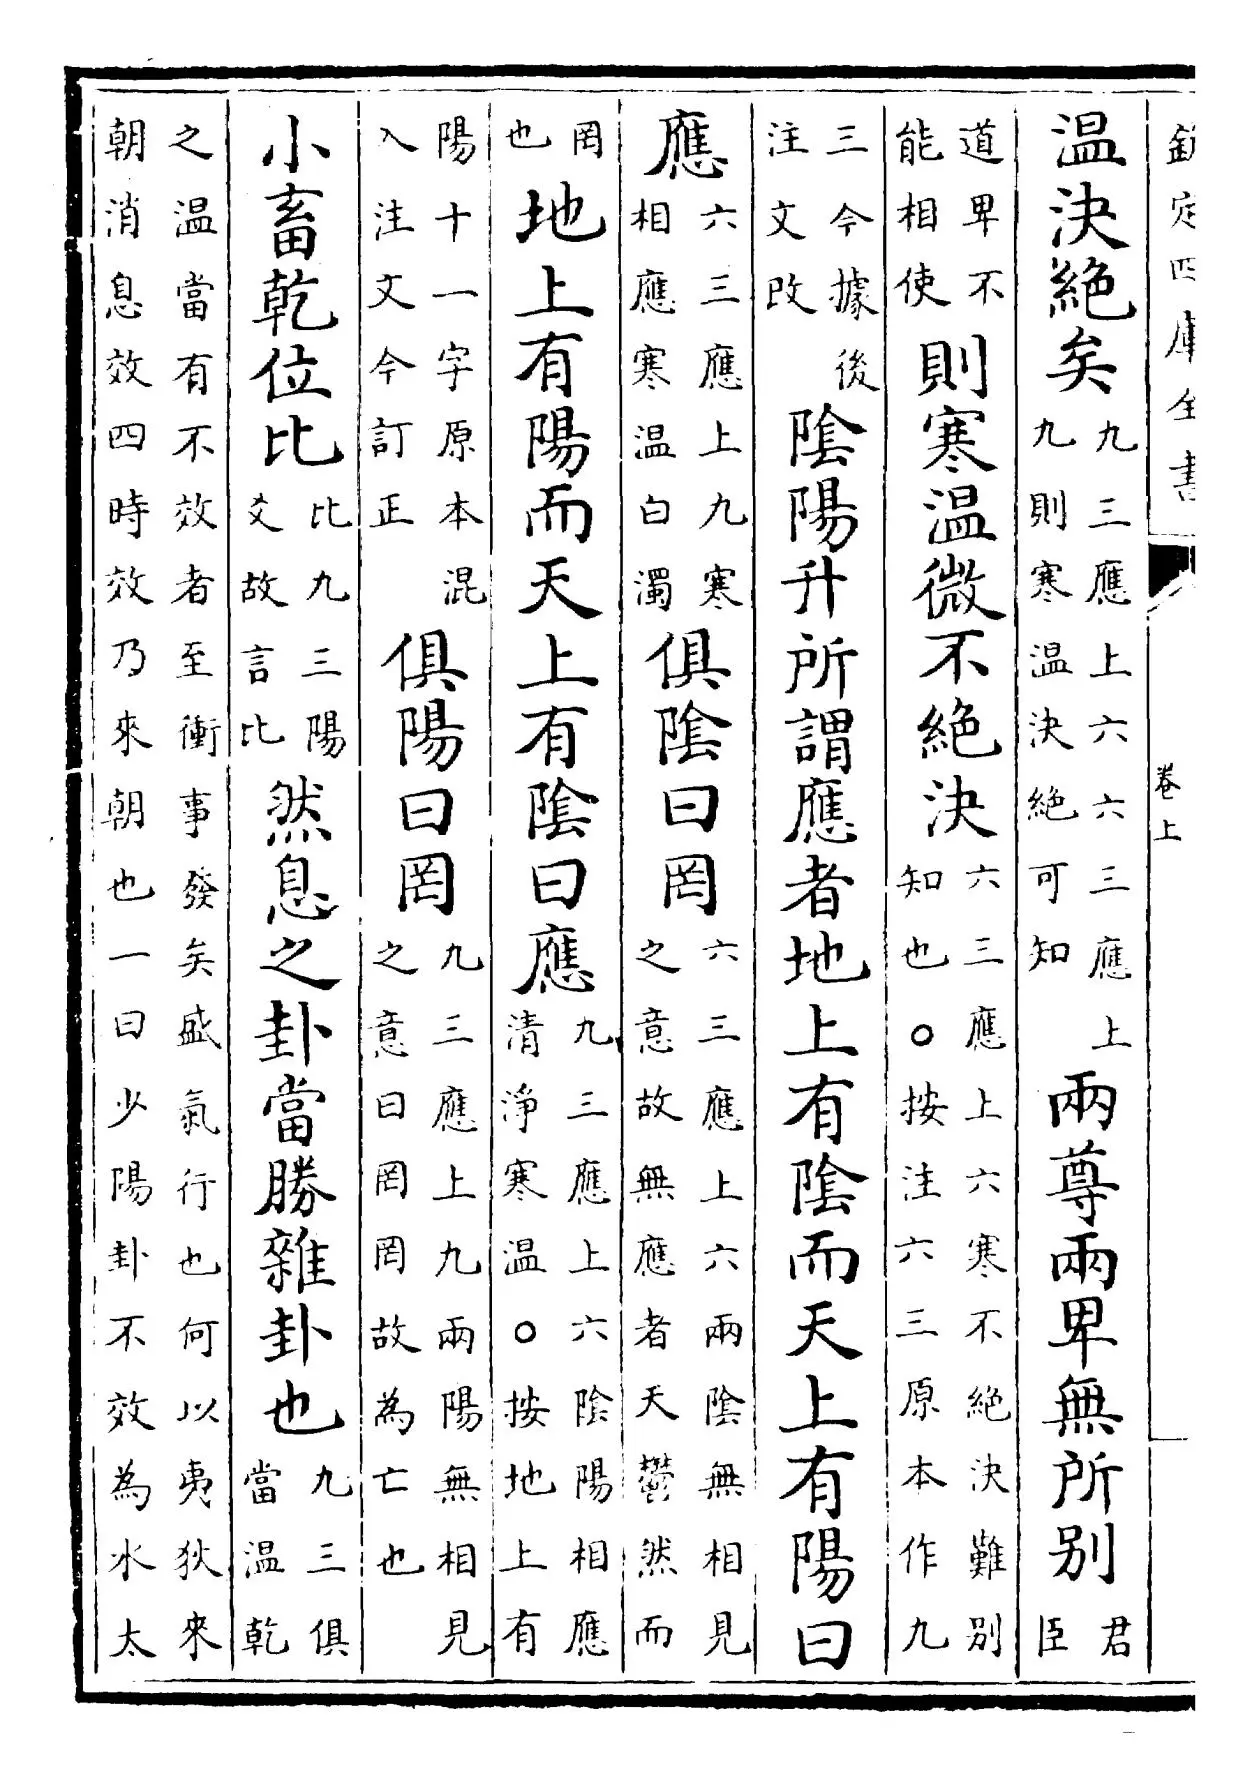 欽定四庫全書 卷上
温決絶矣九三應上六六三應上九則寒温決絶可知兩尊兩卑無所别君臣
道卑不能相使則寒温微不絶決六三應上六寒不絶決難别知也○按注六三原本作九
三今據後注文改陰陽升所謂應者地上有陰而天上有陽曰
應六三應上九寒相應寒温白濁俱陰曰罔六三應上六兩陰無相見之意故無應者天鬱然而
罔也地上有陽而天上有陰曰應九三應上六陰陽相應清淨寒温○按地上有
陽十一字原本混入注文今訂正俱陽曰罔九三應上九兩陽無相見之意曰罔罔故為亡也
小畜乾位比比九三陽爻故言比然息之卦當勝雜卦也九三俱當温乾
之温當有不效者至衝事發矣盛氣行也何以夷狄來
朝消息效四時效乃來朝也一曰少陽卦不效為水太